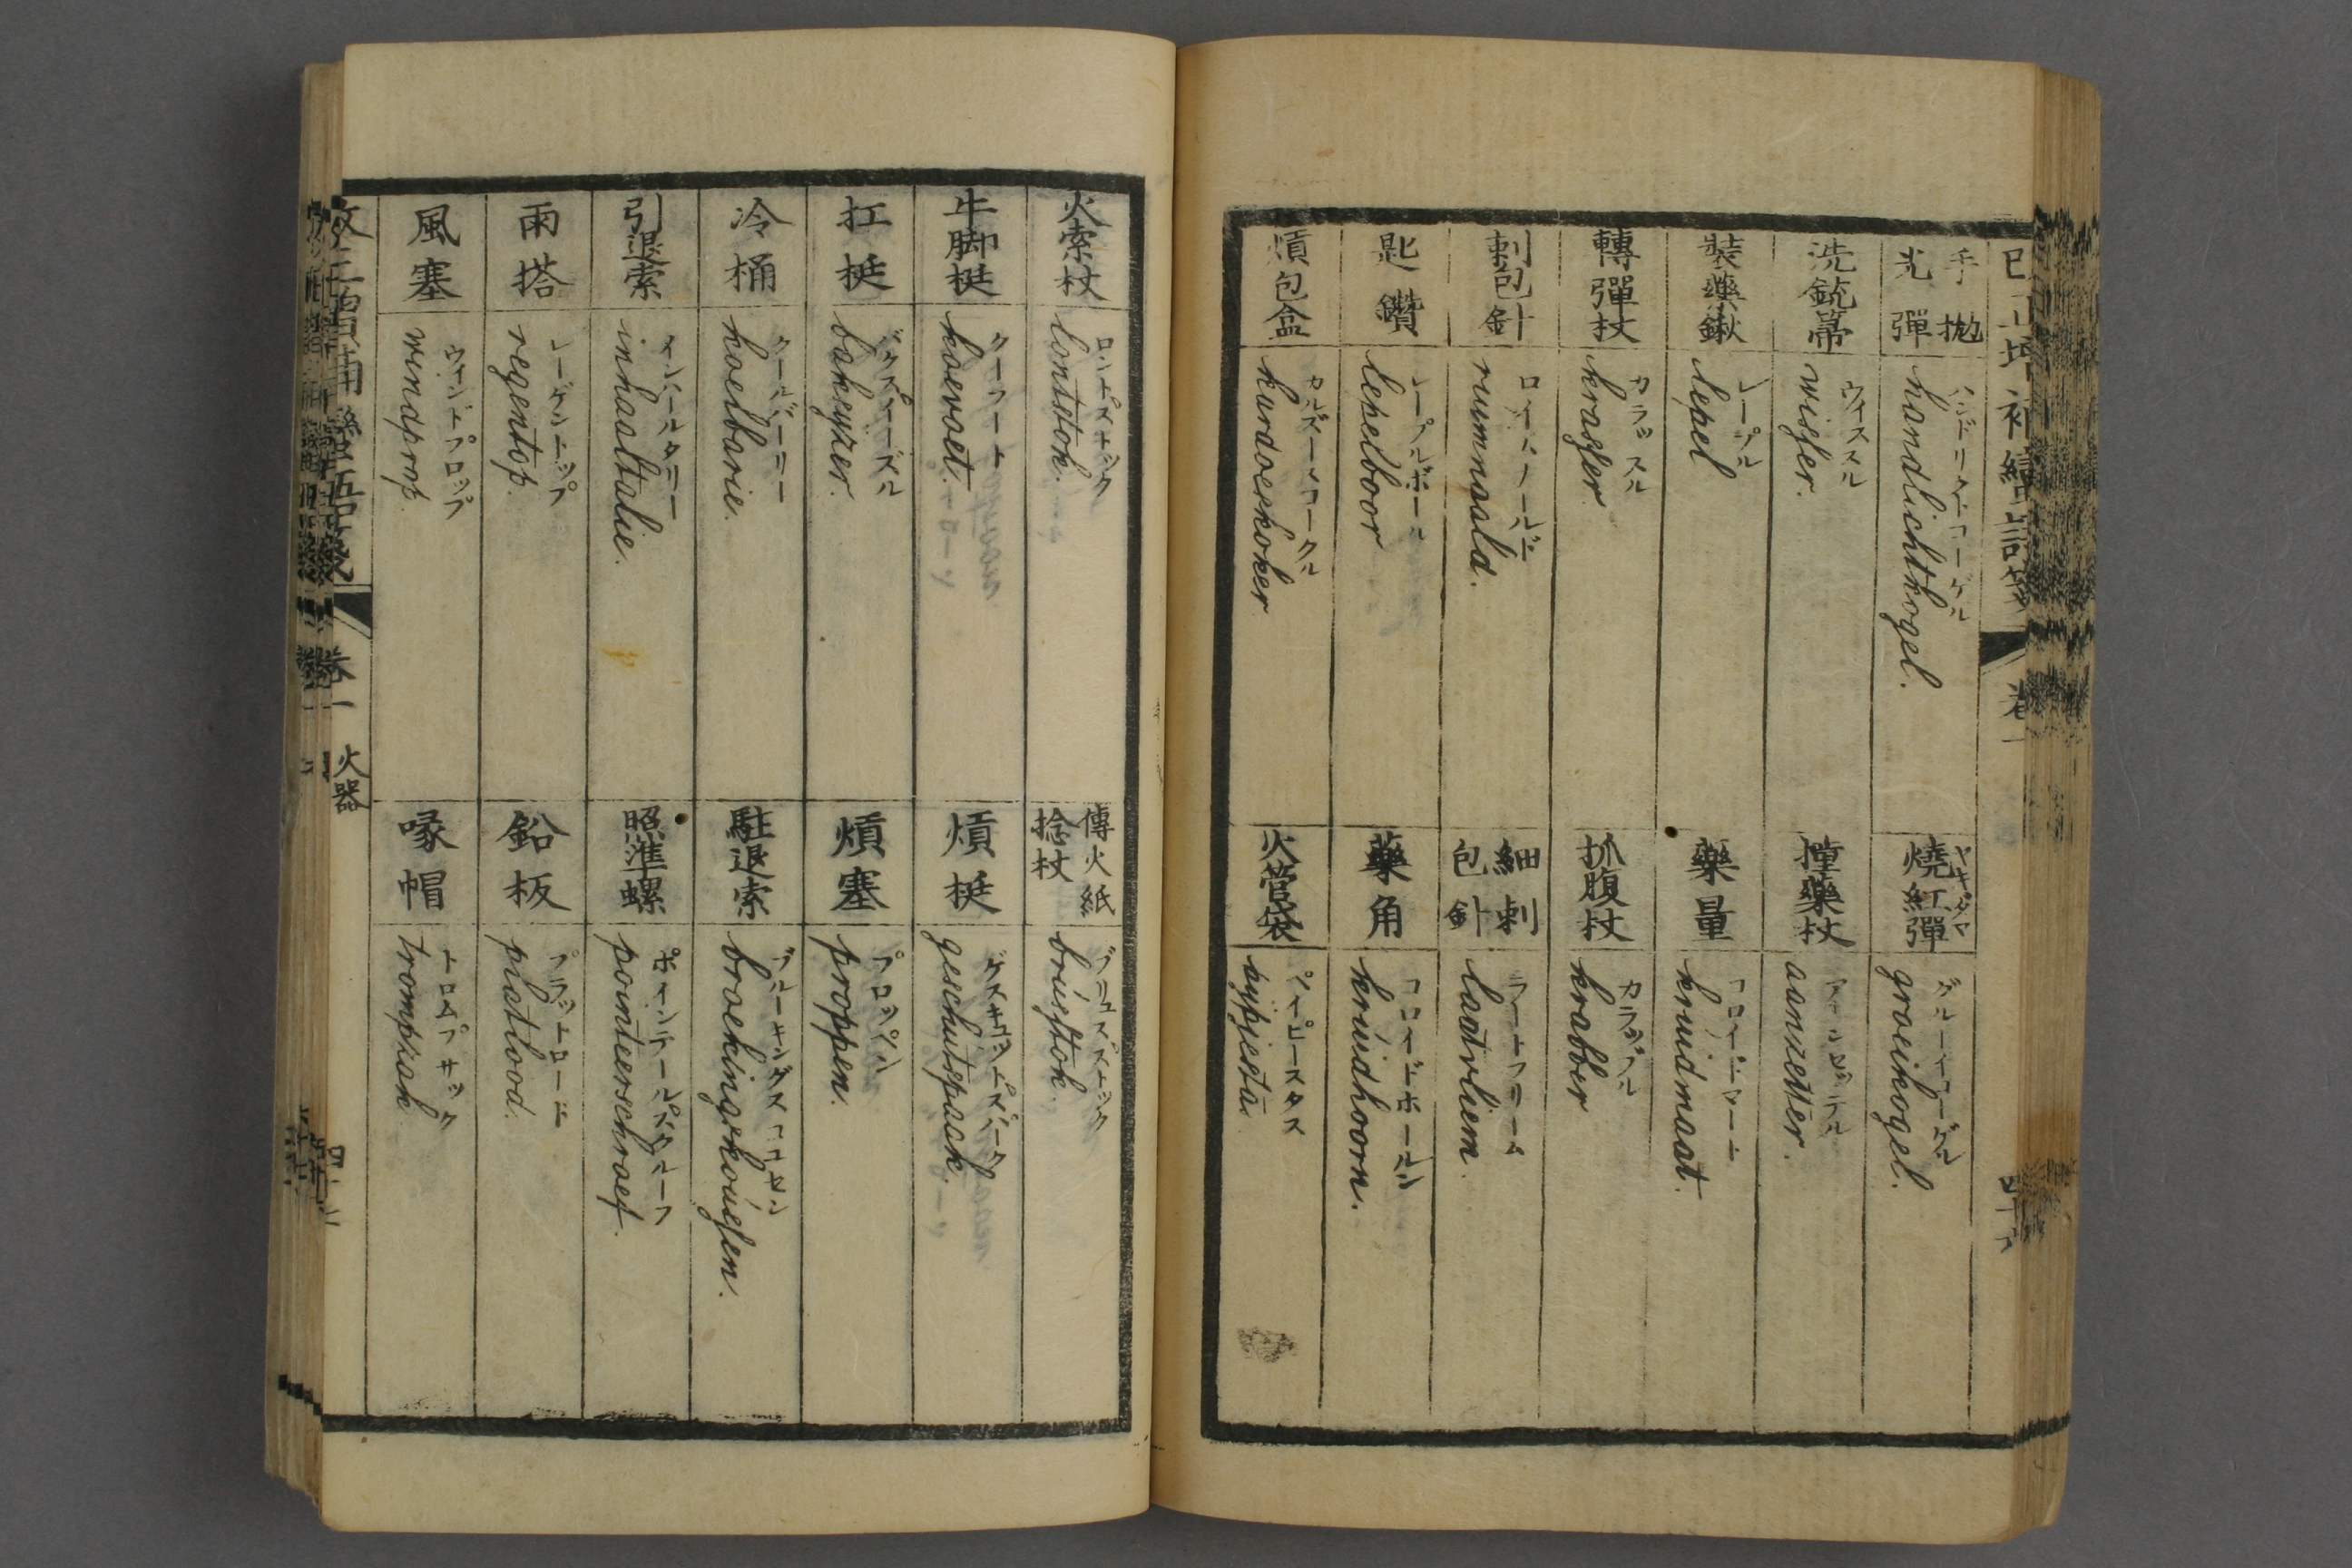 手拋光彈
ハンドリクトコーゲル
handlichtkogel.
燒紅彈
ヤキダマ
グルーイコーゲル
groeikogel.
洗銃帚
ウイススル
wisser.
撞藥杖
アーンセッテル
aanzetter.
裝藥鍬
レープル
lepel
藥量
コロイドマート
kruidmaat.
轉彈杖
カラッスル
krasser.
抓腹杖
カラッブル
krabber
刺包針
ロイムナールド
ruimnaald.
細刺包針
ラートフリーム
laatvliem.
匙鑽
レープルボール
lepelboor
藥角
コロイドホールン
kruidhoorn.
熕包盒
カルズースコークル
kardoeskoker
火菅袋
ペイピースタス
pijpjesta
火索杖
ロントストック
lontstok.
傳火紙捻杖
ブリュスストック
brússtok.
牛脚梃
クーフート
koevoet.
熕梃
ゲスキュットスパーク
geschutspaak.
扛梃
バクエイズル
bakeyzer.
熕塞
プロッペン
proppen.
冷桶
クールバーリー
koelbarie.
駐退索
ブルーキングスコユセン
broekingskoússen.
引退索
インハールタリー
inhaaltalie.
照準螺
ポインテールスクルーフ
pointeerschroef.
雨搭
レーゲントップ
regentop.
鉛板
プラットロード
platlood.
風塞
ウインドプロップ
windprop.
喙帽
トロムプサック
trompzak
卷一
火器